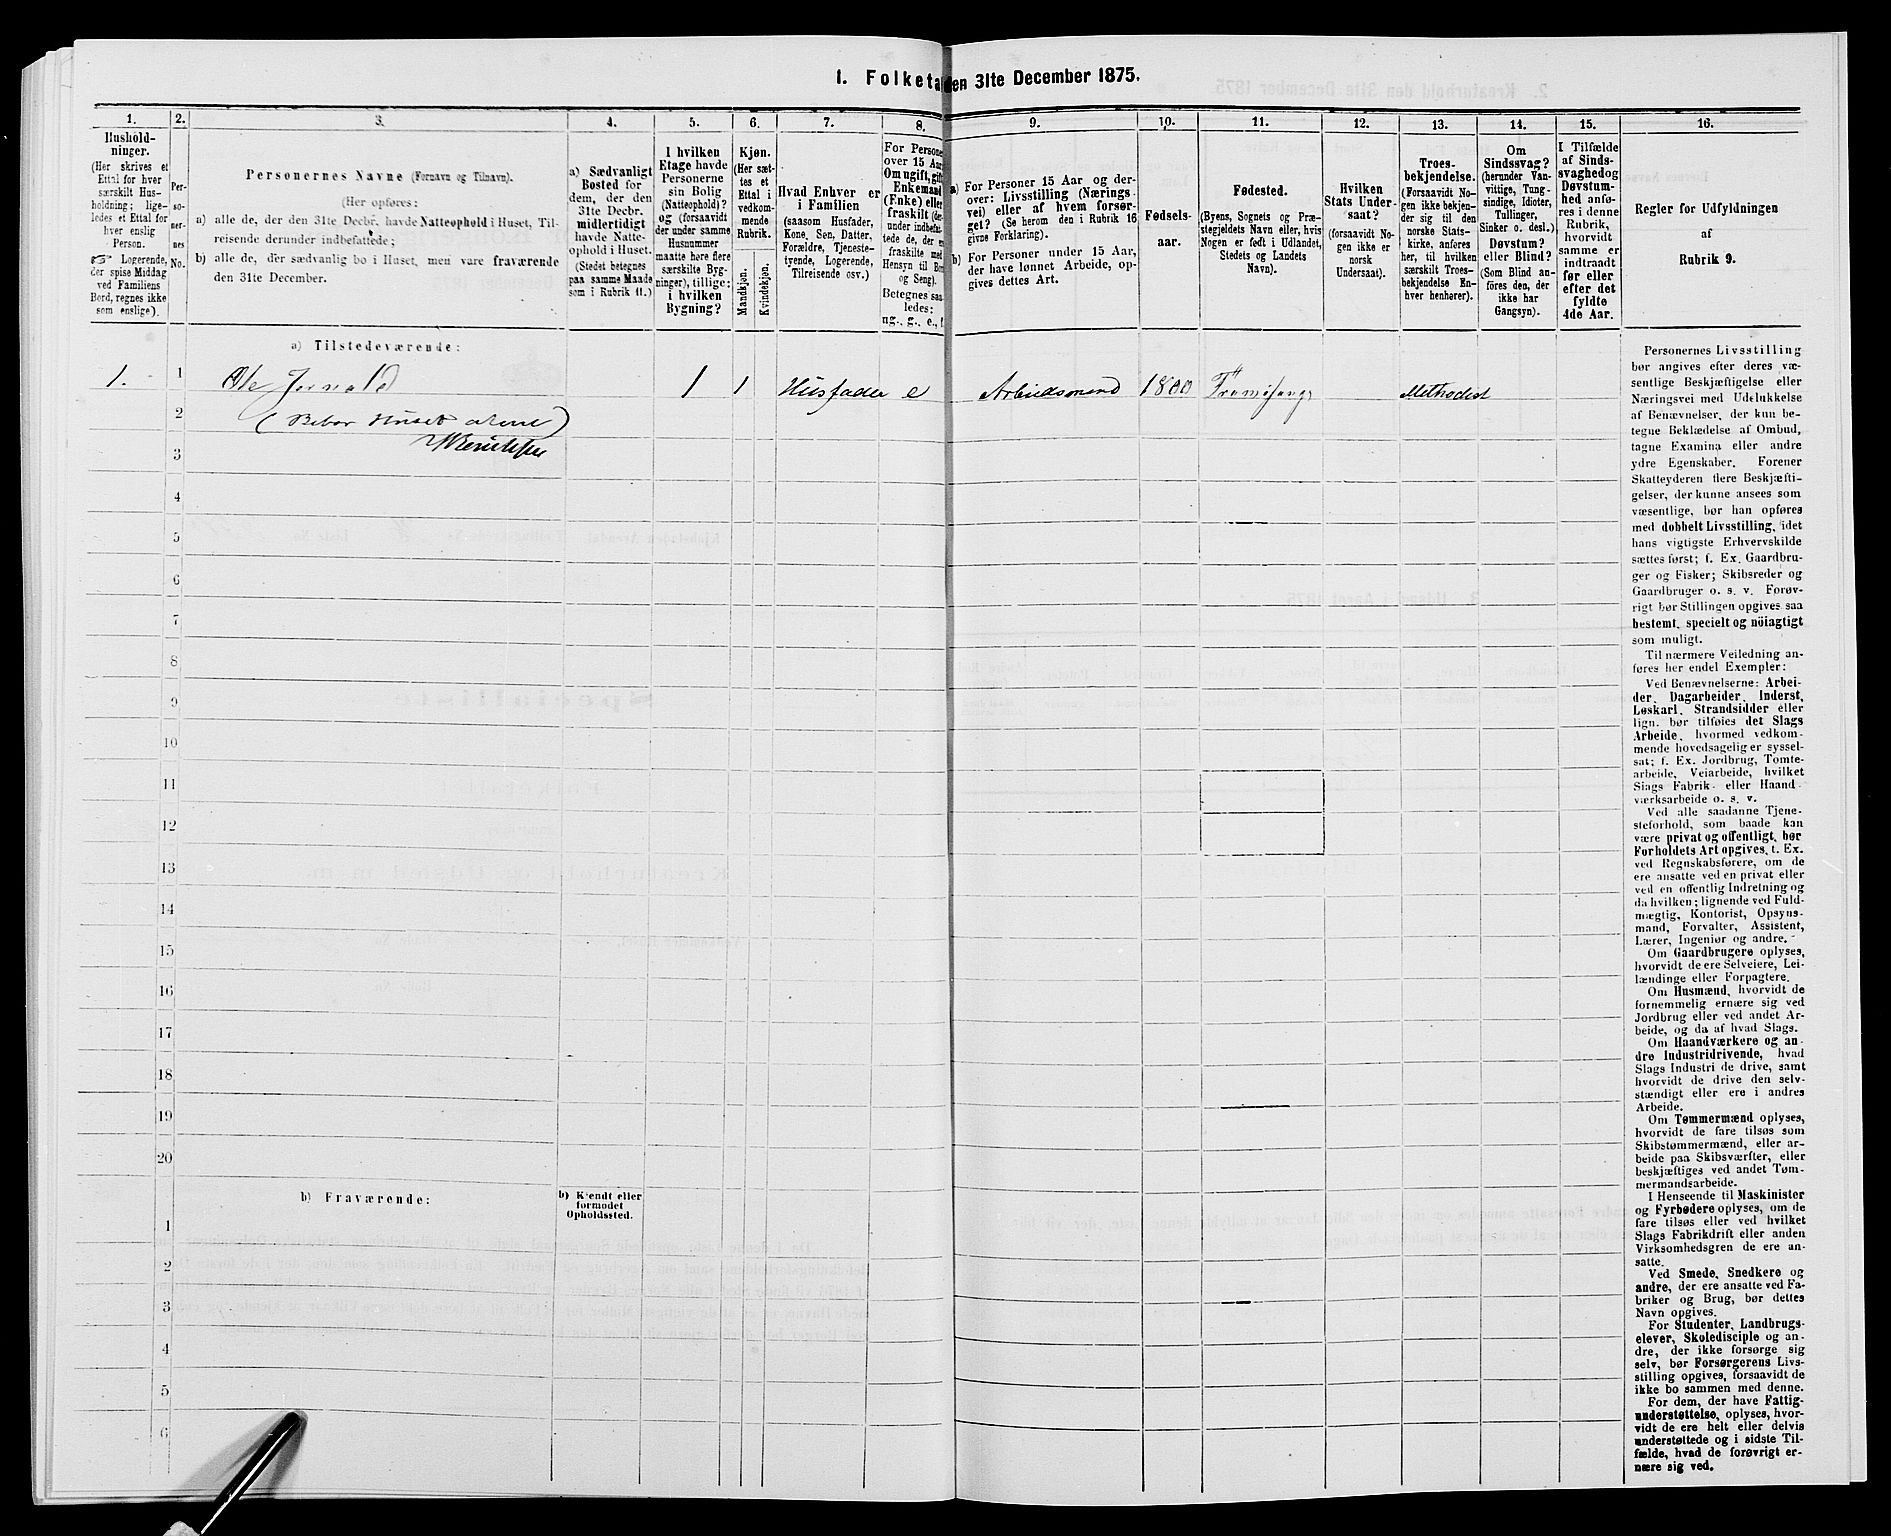 1. Folketa
en 31te December 1875.
1.
Hushold-
ninger.
(Her skrives et
Ettal for hver
særskilt Hus-
holdning; lige-
ledes et Ettal for
hver enslig
Person.
☞ Logerende,
der spise Middag
ved Familiens
Bord, regnes ikke
som enslige).
2.
Per-
so-
ner-
nes
No.
3.
Personernes Navne (Fornavn og Tilnavn).
(Her opføres:
a) alle de, der den 31te Decbr. havde Natteophold i Huset, Til-
reisende derunder indbefattede;
b) alle de, der sædvanlig bo i Huset, men vare fraværende
den 31te December.
4.
a) Sædvanligt
Bosted for
dem, der den
31te Decbr.
midlertidigt
havde Natte-
ophold i Huset.
(Stedet betegnes
paa samme Maade
som i Rubrik 11.)
5.
I hvilken
Etage havde
Personerne
sin Bolig
(Natteophold)?
og (forsaavidt
der under samme
Husnummer
maatte høre flere
særskilte Byg-
ninger), tillige:
i hvilken
Bygning?
6.
Kjøn.
(Her sæt-
tes et
Ettal i
vedkom-
mende
Rubrik.
Mandkjøn.
Kvindekjøn.
7.
Hvad Enhver er
i Familien
(saasom Husfader,
Kone, Søn, Datter,
Forældre, Tjeneste-
tyende, Logerende,
Tilreisende osv.)
8.
For Persone
over 15 Aar
Om ugift, gift
Enkemand
(Enke) eller
fraskilt (der-
under indbefat-
tede de, der e
fraskilte med
Hensyn til Bo
og Seng).
Betegnes saa
ledes:
ug., g., e., f
9.
a) For Personer 15 Aar og der-
over: Livsstilling (Nærings
vei) eller af hvem forsør-
get? (Se herom den i Rubrik 16
givne Forklaring).
b) For Personer under 15 Aar,
der have lønnet Arbeide, op-
gives dettes Art.
10.
Fødsels-
aar.
11.
Fødested.
(Byens, Sognets og Præ-
stegjeldets Navn eller, hvis
Nogen er født i Udlandet,
Stedets og Landets
Navn).
12.
Hvilken
Stats Under-
saat?
(forsaavidt No-
gen ikke er
norsk
Undersaat).
13.
Troes-
bekjendelse.
(Forsaavidt No-
gen ikke bekjen-
der sig til den
norske Stats-
kirke, anføres
her, til hvilken
særskilt Troes-
bekjendelse En-
hver henhører).
14.
Om
Sindssvag?
(herunder Van-
vittige, Tung-
sindige, Idioter,
Tullinger,
Sinker o. desl.)
Døvstum?
eller Blind?
(Som Blind an-
føres den, der
ikke har
Gangsyn).
15.
I Tilfælde
af Sinds-
svaghed og
Døvstum-
hed anfø-
res i denne
Rubrik,
hvorvidt
samme er
indtraadt
før eller
efter det
fyldte
4de Aar.
16.
Regler for Udfyldningen
af
Rubrik 9.
a) Tilstedeværende:
1. 1 Ole 1 1 Husfader e Arbeidsmand 1800 Methodist
2 (Bebor Huset alene)
3
4
5
6
7
8
9
10
11
12
13
14
15
16
17
18
19
20
b) Fraværende:
b) Kjendt eller
formodet
Opholdssted.
1
2
3
4
5
6
Personernes Livsstilling
bør angives efter deres væ-
sentlige Beskjæftigelse eller
Næringsvei med Udelukkelse
af Benævnelser, der kun be-
tegne Beklædelse af Ombud,
tagne Examina eller andre
ydre Egenskaber. Forener
Skatteyderen flere Beskjæfti-
gelser, der kunne ansees som
væsentlige, bør han opføres
med dobbelt Livsstilling, idet
hans vigtigste Erhvervskilde
sættes først; f. Ex. Gaardbru-
ger og Fisker; Skibsreder og
Gaardbruger o. s. v. Forøv-
rigt bør Stillingen opgives saa
bestemt, specielt og nöiagtigt
som muligt.
Til nærmere Veiledning an-
føres her endel Exempler:
Ved Benævnelserne: Arbei-
der, Dagarbeider, Inderst,
Løskarl, Strandsidder eller
lign. bør tilføies det Slags
Arbeide, hvormed vedkom-
mende hovedsagelig er syssel-
sat; f. Ex. Jordbrug, Tomte-
arbeide, Veiarbeide, hvilket
Slags Fabrik- eller Haand-
værksarbeide o. s. v.
Ved alle saadanne Tjene-
steforhold, som baade kan
være privat og offentligt, bør
Forholdets Art opgives, f. Ex.
ved Regnskabsførere, om de
ere ansatte ved en privat eller
ved en offentlig Indretning og
da hvilken; lignende ved Fuld-
mægtig, Kontorist, Opsyns-
mand, Forvalter, Assistent,
Lærer, Ingeniør og andre.
Om Gaardbrugere oplyses,
hvorvidt de ere Selveiere, Lei-
lændinge eller Forpagtere.
Om Husmænd, hvorvidt de
fornemmelig ernære sig ved
Jordbrug eller ved andet Ar-
beide, og da af hvad Slags.
Om Haandværkere og an-
dre Industridrivende, hvad
Slags Industri de drive, samt
hvorvidt de drive den selv-
stændigt eller ere i andres
Arbeide.
Om Tømmermænd oplyses,
hvorvidt de fare tilsøs som
Skibstømmermænd, eller ar-
beide paa Skibsværfter, eller
beskjæftiges ved andet Tøm-
mermandsarbeide.
I Henseende til Maskinister
og Fyrbødere oplyses, om de
fare tilsøs eller ved hvilket
Slags Fabrikdrift eller anden
Virksomhedsgren de ere an-
satte.
Ved Smede, Snedkere og
andre, der ere ansatte ved Fa-
briker og Brug, bør dettes
Navn opgives.
For Studenter, Landbrugs-
elever, Skoledisciple og an-
dre, der ikke forsørge sig
selv, bør Forsørgerens Livs-
stilling opgives, forsaavidt de
ikke bo sammen med denne.
For dem, der have Fattig-
understøttelse, oplyses, hvor-
vidt de ere helt eller delvis
understøttede og i sidste Til-
fælde, hvad de forøvrigt er-
nære sig ved.